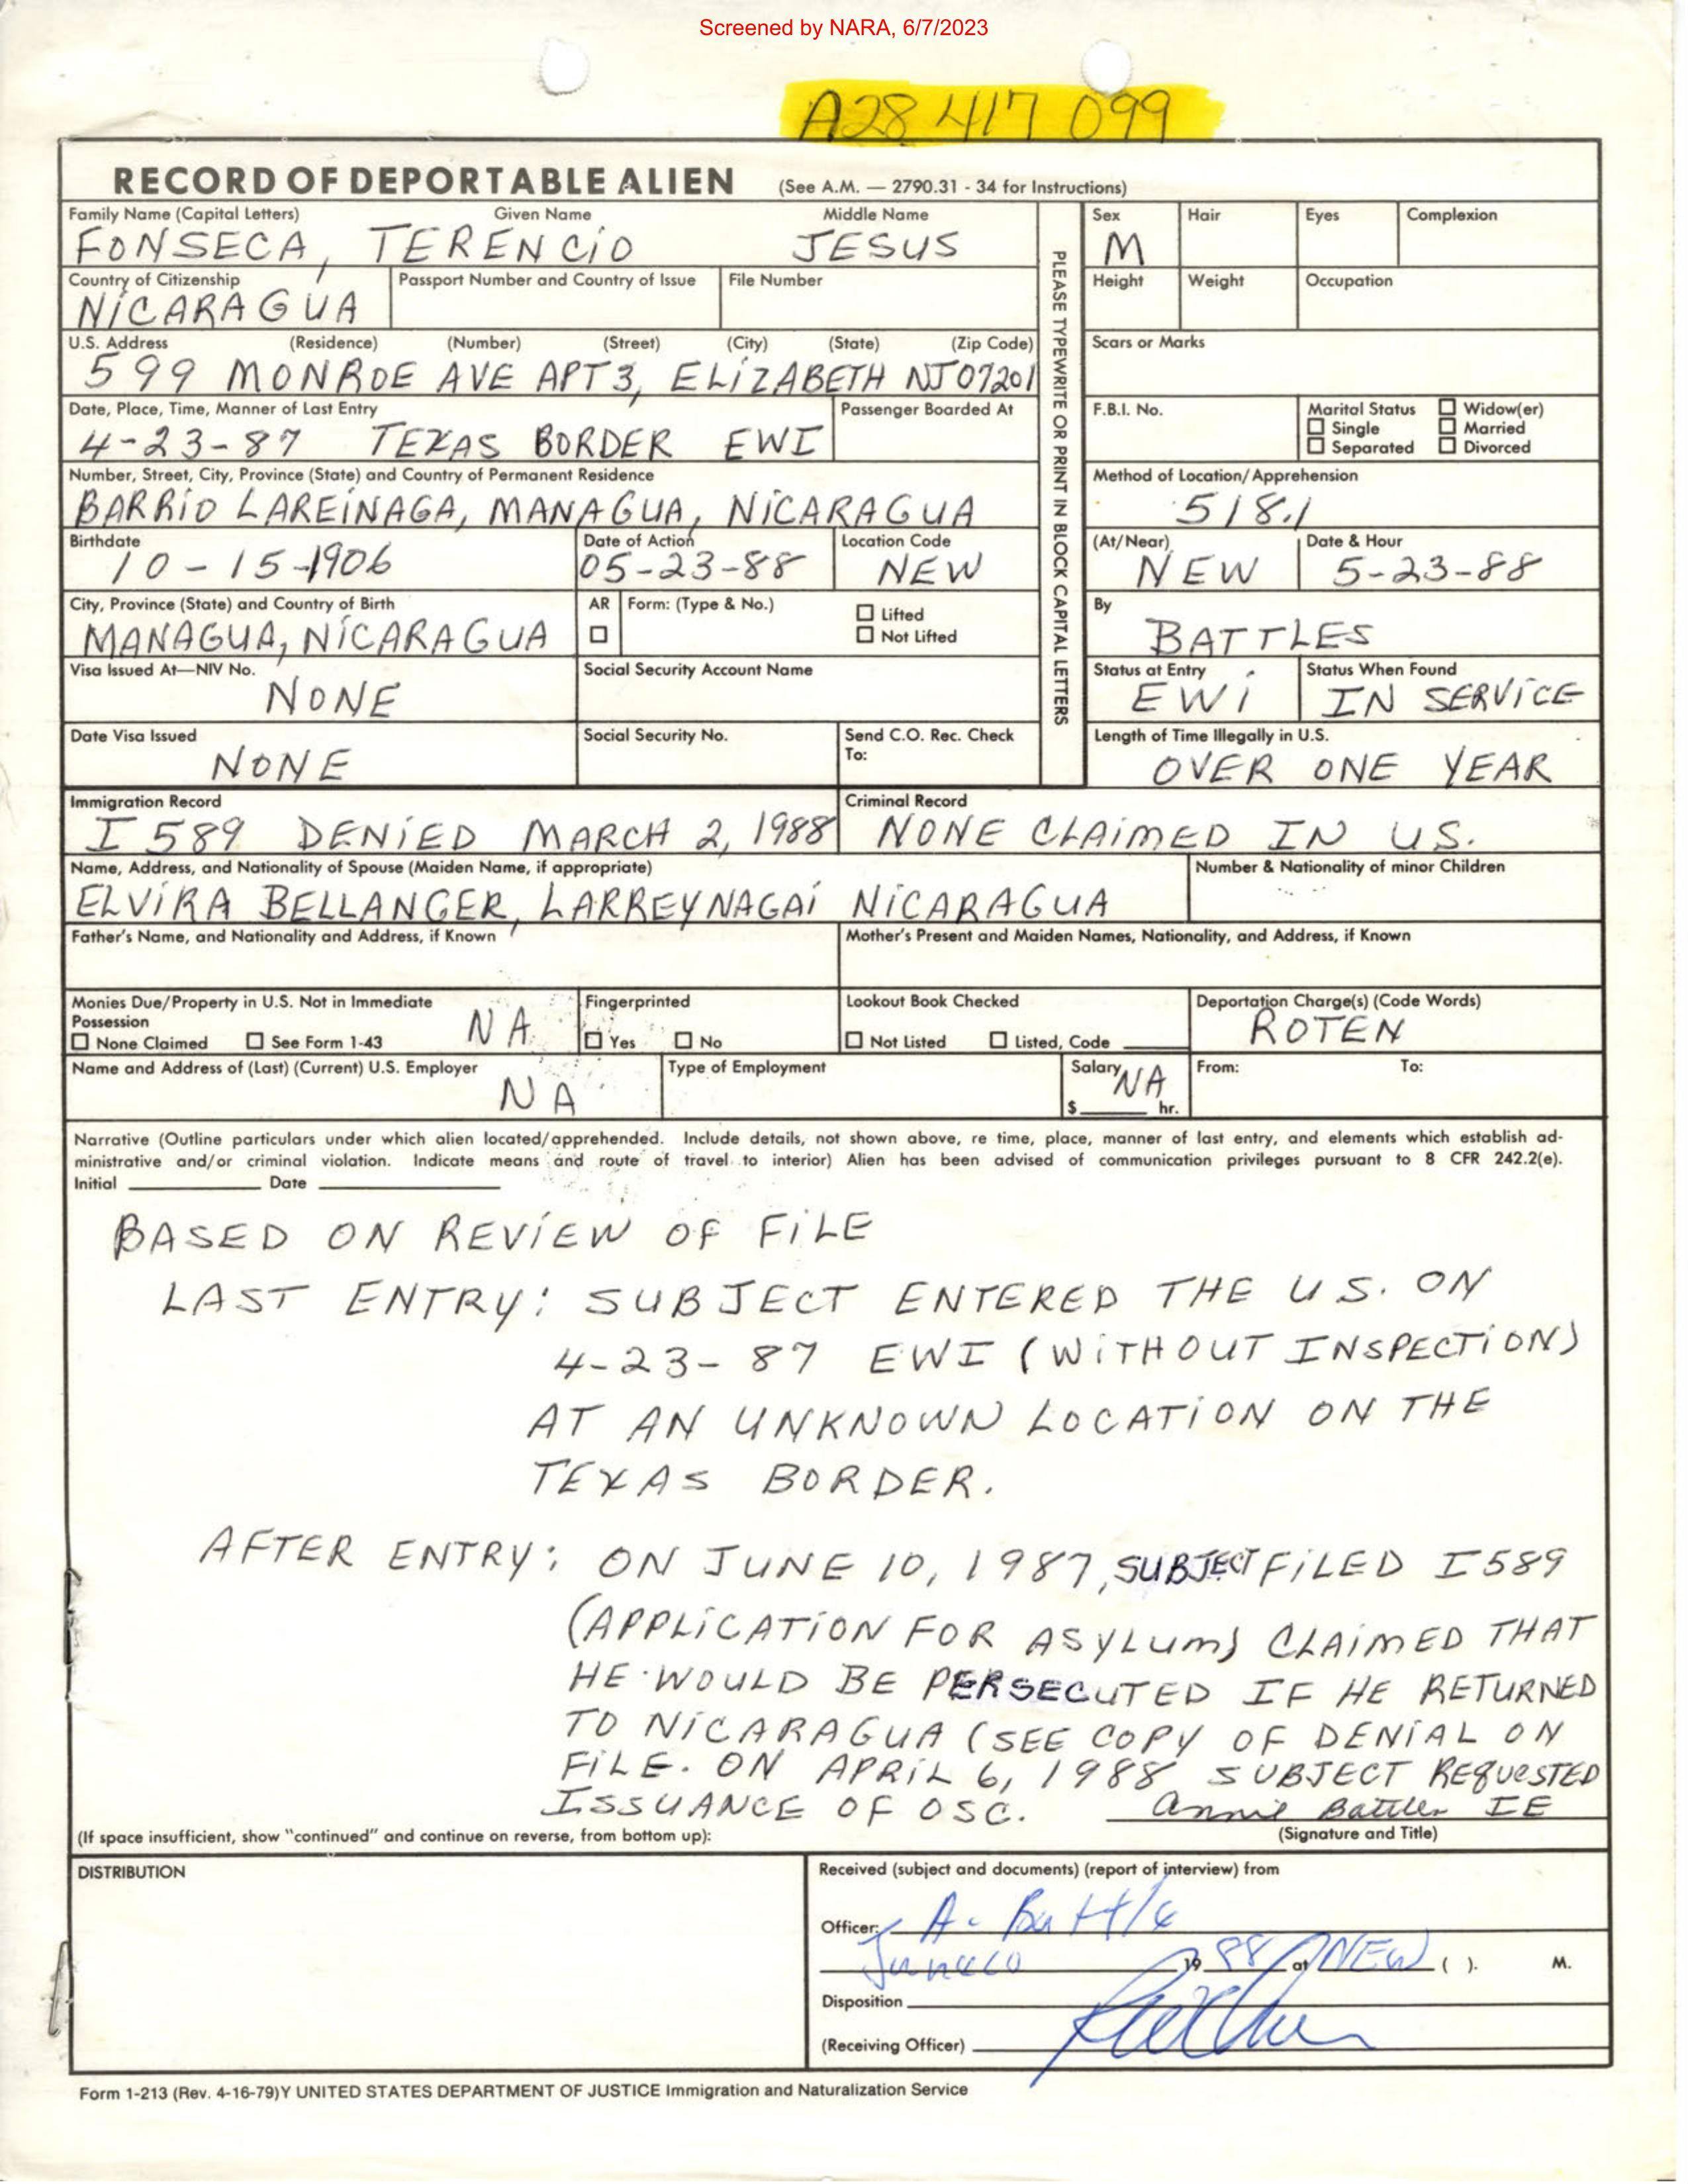 Screened by NARA, 6/7/2023
A28 417 099
RECORD OF DEPORTABLE ALIEN (See A.M. — 2790.31 - 34 for Instructions)
Family Name (Capital Letters) Given Name Middle Name
FONSECA, TERENCIO JESUS
Sex Hair Eyes Complexion
M
Country of Citizenship Passport Number and Country of Issue File Number
NICARAGUA
Height Weight Occupation
U.S. Address (Residence) (Number) (Street) (City) (State) (Zip Code)
599 MONROE AVE APT 3, ELIZABETH NJ 07201
Scars or Marks
PLEASE TYPEWRITE OR PRINT IN BLOCK CAPITAL LETTERS
Date, Place, Time, Manner of Last Entry Passenger Boarded At
4-23-87 TEXAS BORDER EWI
F.B.I. No. Marital Status ☐ Widow(er)
☐ Single ☐ Married
☐ Separated ☐ Divorced
Number, Street, City, Province (State) and Country of Permanent Residence
BARRIO LAREINAGA, MANAGUA, NICARAGUA
Method of Location/Apprehension
518.1
Birthdate Date of Action Location Code
10-15-1906 05-23-88 NEW
(At/Near) Date & Hour
NEW 5-23-88
City, Province (State) and Country of Birth AR Form: (Type & No.) ☐ Lifted
MANAGUA, NICARAGUA ☐ ☐ Not Lifted
By
BATTLES
Visa Issued At—NIV No. Social Security Account Name
NONE
Status at Entry Status When Found
EWI IN SERVICE
Date Visa Issued Social Security No. Send C.O. Rec. Check
To:
NONE
Length of Time Illegally in U.S.
OVER ONE YEAR
Immigration Record Criminal Record
I 589 DENIED MARCH 2, 1988 NONE CLAIMED IN US.
Name, Address, and Nationality of Spouse (Maiden Name, if appropriate) Number & Nationality of minor Children
ELVIRA BELLANGER, LARREYNAGAI NICARAGUA
Father's Name, and Nationality and Address, if Known Mother's Present and Maiden Names, Nationality, and Address, if Known
Monies Due/Property in U.S. Not in Immediate
Possession NA
☐ None Claimed ☐ See Form 1-43
Fingerprinted
☐ Yes ☐ No
Lookout Book Checked
☐ Not Listed ☐ Listed, Code
Deportation Charge(s) (Code Words)
ROTEN
Name and Address of (Last) (Current) U.S. Employer Type of Employment Salary From: To:
NA NA
$ hr.
Narrative (Outline particulars under which alien located/apprehended. Include details, not shown above, re time, place, manner of last entry, and elements which establish ad-
ministrative and/or criminal violation. Indicate means and route of travel to interior) Alien has been advised of communication privileges pursuant to 8 CFR 242.2(e).
Initial Date
BASED ON REVIEW OF FILE
LAST ENTRY: SUBJECT ENTERED THE U.S. ON
4-23-87 EWI (WITHOUT INSPECTION)
AT AN UNKNOWN LOCATION ON THE
TEXAS BORDER.
AFTER ENTRY: ON JUNE 10, 1987, SUBJECT FILED I589
(APPLICATION FOR ASYLUM) CLAIMED THAT
HE WOULD BE PERSECUTED IF HE RETURNED
TO NICARAGUA (SEE COPY OF DENIAL ON
FILE. ON APRIL 6, 1988 SUBJECT REQUESTED
ISSUANCE OF OSC. Annie Battles IE
(If space insufficient, show "continued" and continue on reverse, from bottom up): (Signature and Title)
DISTRIBUTION
Received (subject and documents) (report of interview) from
Officer: A. Battle
19 88 at NEW ( ). M.
Disposition
(Receiving Officer)
Form 1-213 (Rev. 4-16-79)Y UNITED STATES DEPARTMENT OF JUSTICE Immigration and Naturalization Service